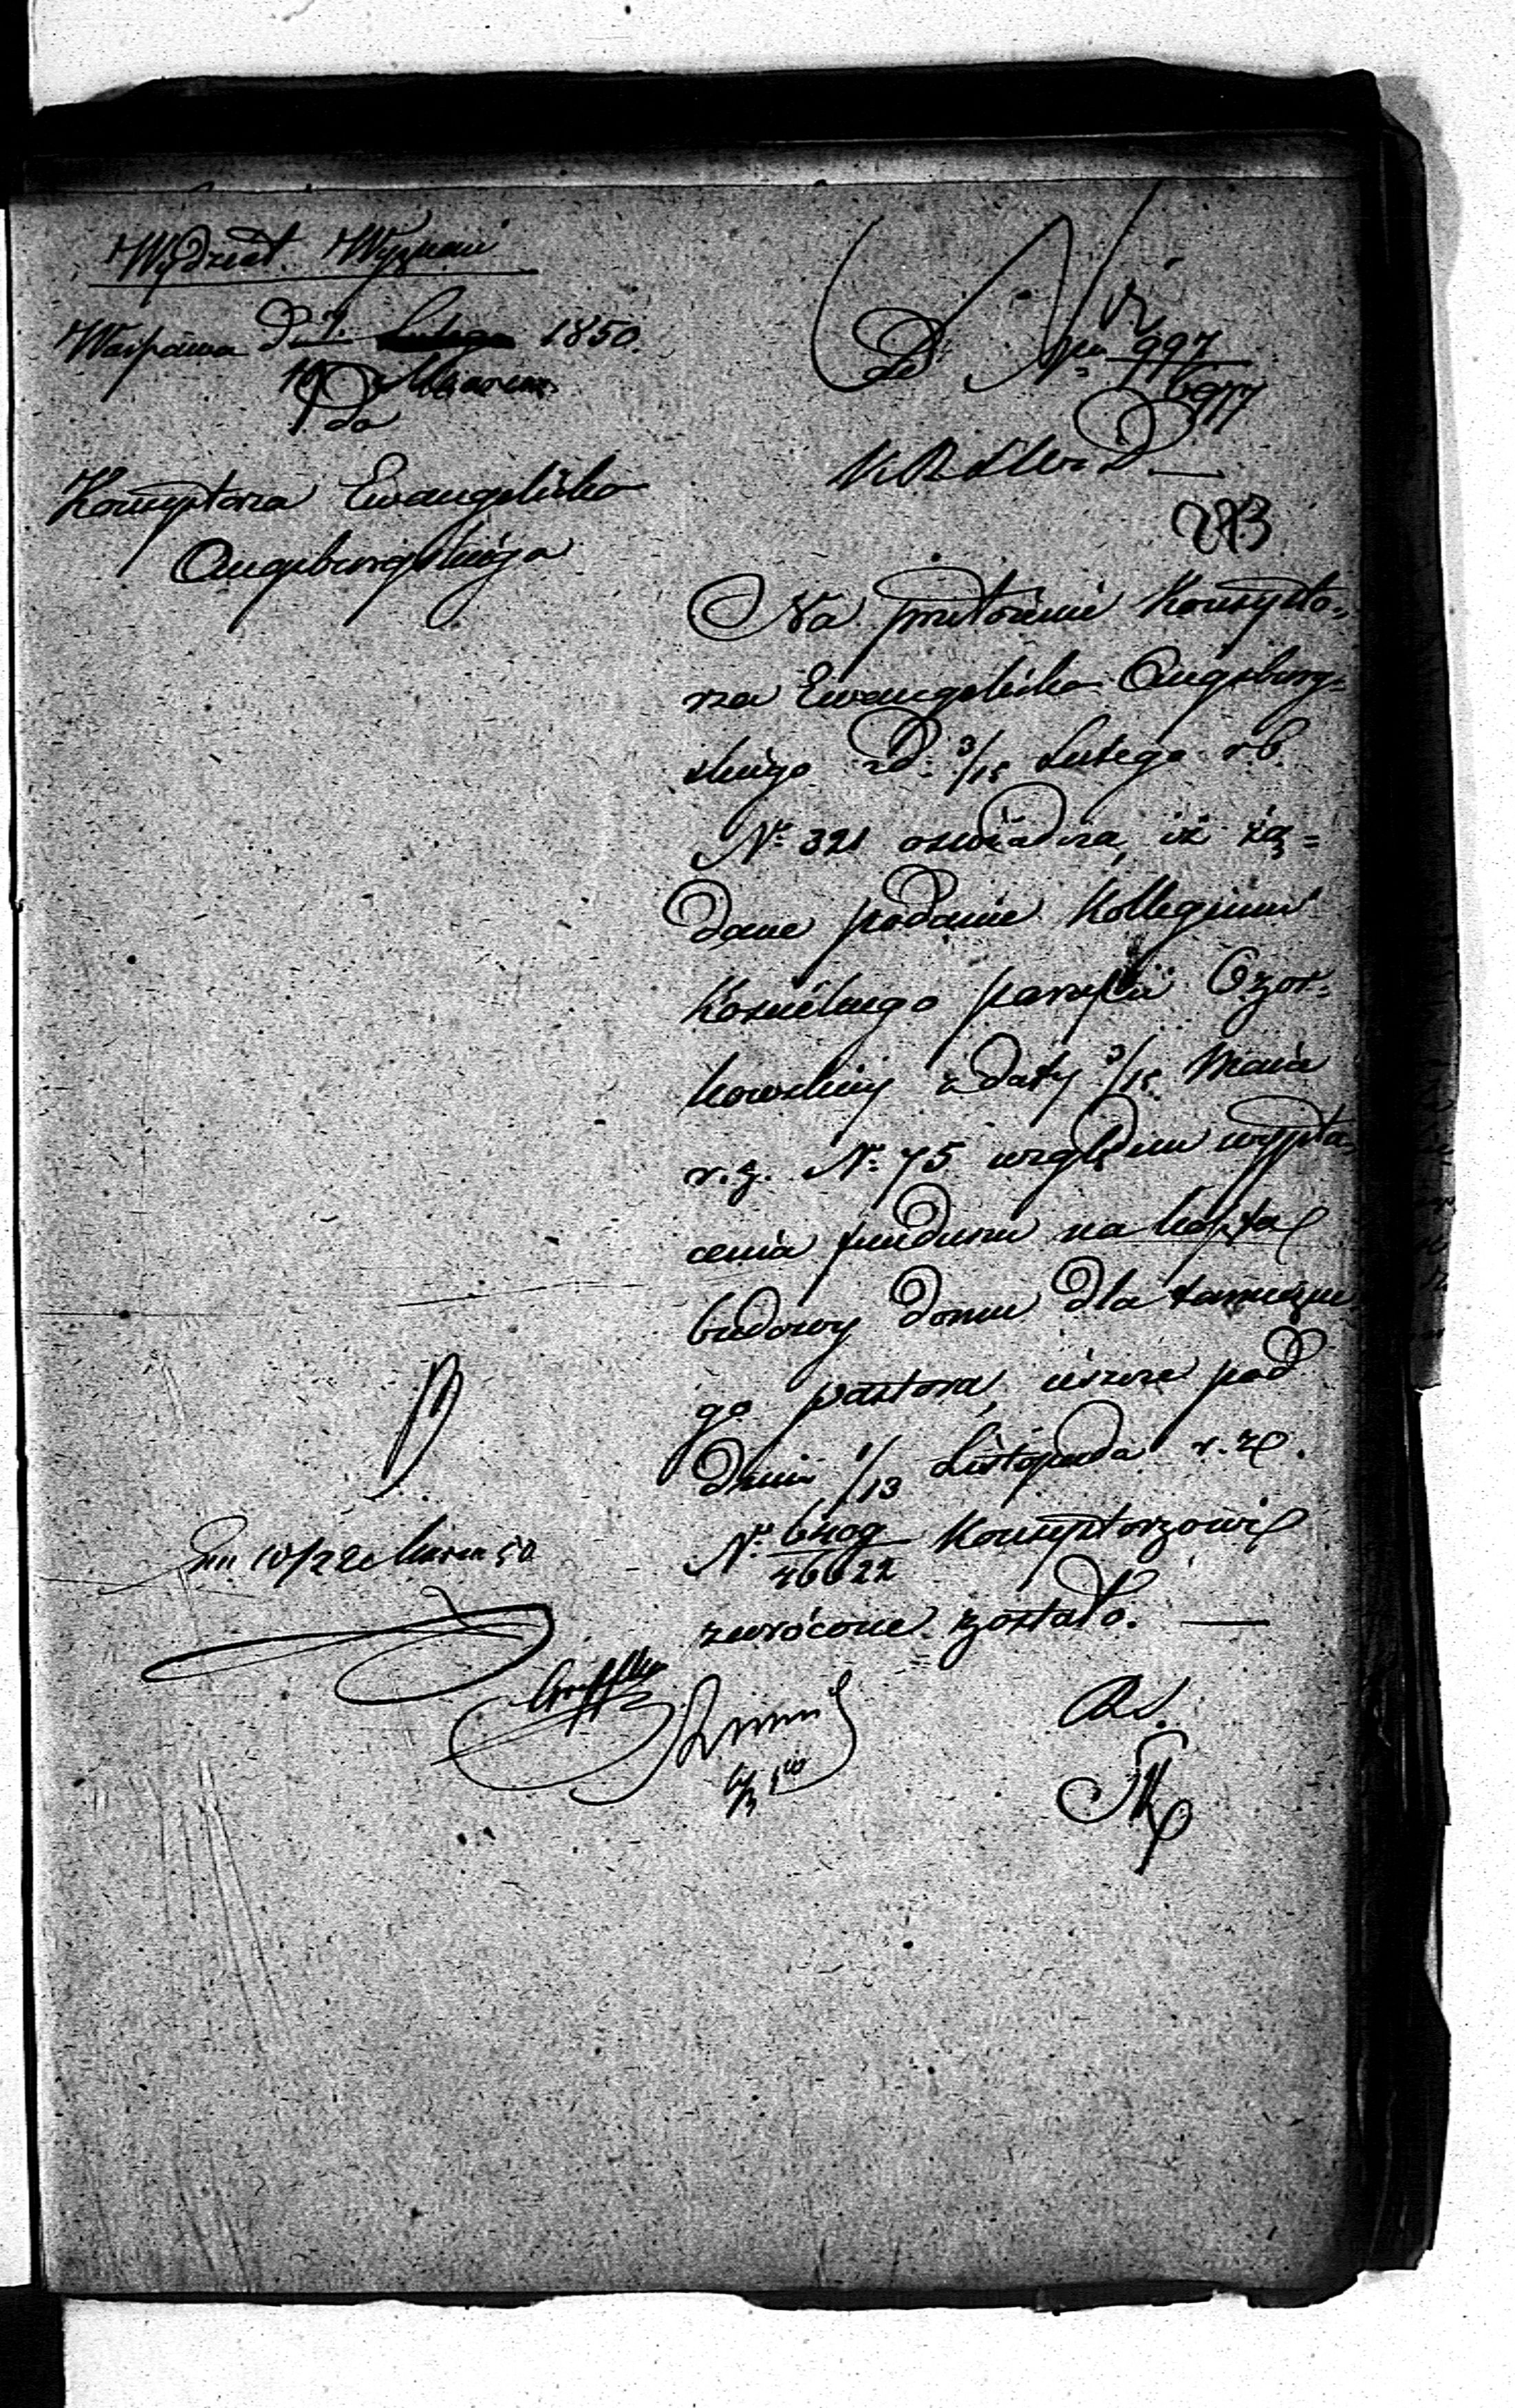 Wydział Wyznań
Warszawa d. 7. Lutego 1850.
Marca
Do
Konsystorza Ewangelicko
Augsburgskiego
Do Nru 997
6977
K. R. S. W. i D.
283
Na przełożenie Konsysto-
rza Ewangelicko Augsburg-
skiego z d. 3/15 Lutego r. b.
N° 321 oświadcza, iż żą-
dane podanie Kollegium
Kościelnego parafii Ozor-
kowskiej z daty 3/15 Maia
r. z. N° 75 względem wypła-
cenia funduszu na koszta
budowy domu dla tameczne
go pastora, ieszcze pod
dniem 1/13 Listopada r. z.
N° 6409/26622 Konsystorzowi
zwrócone zostało. —
10/22 Marca 50